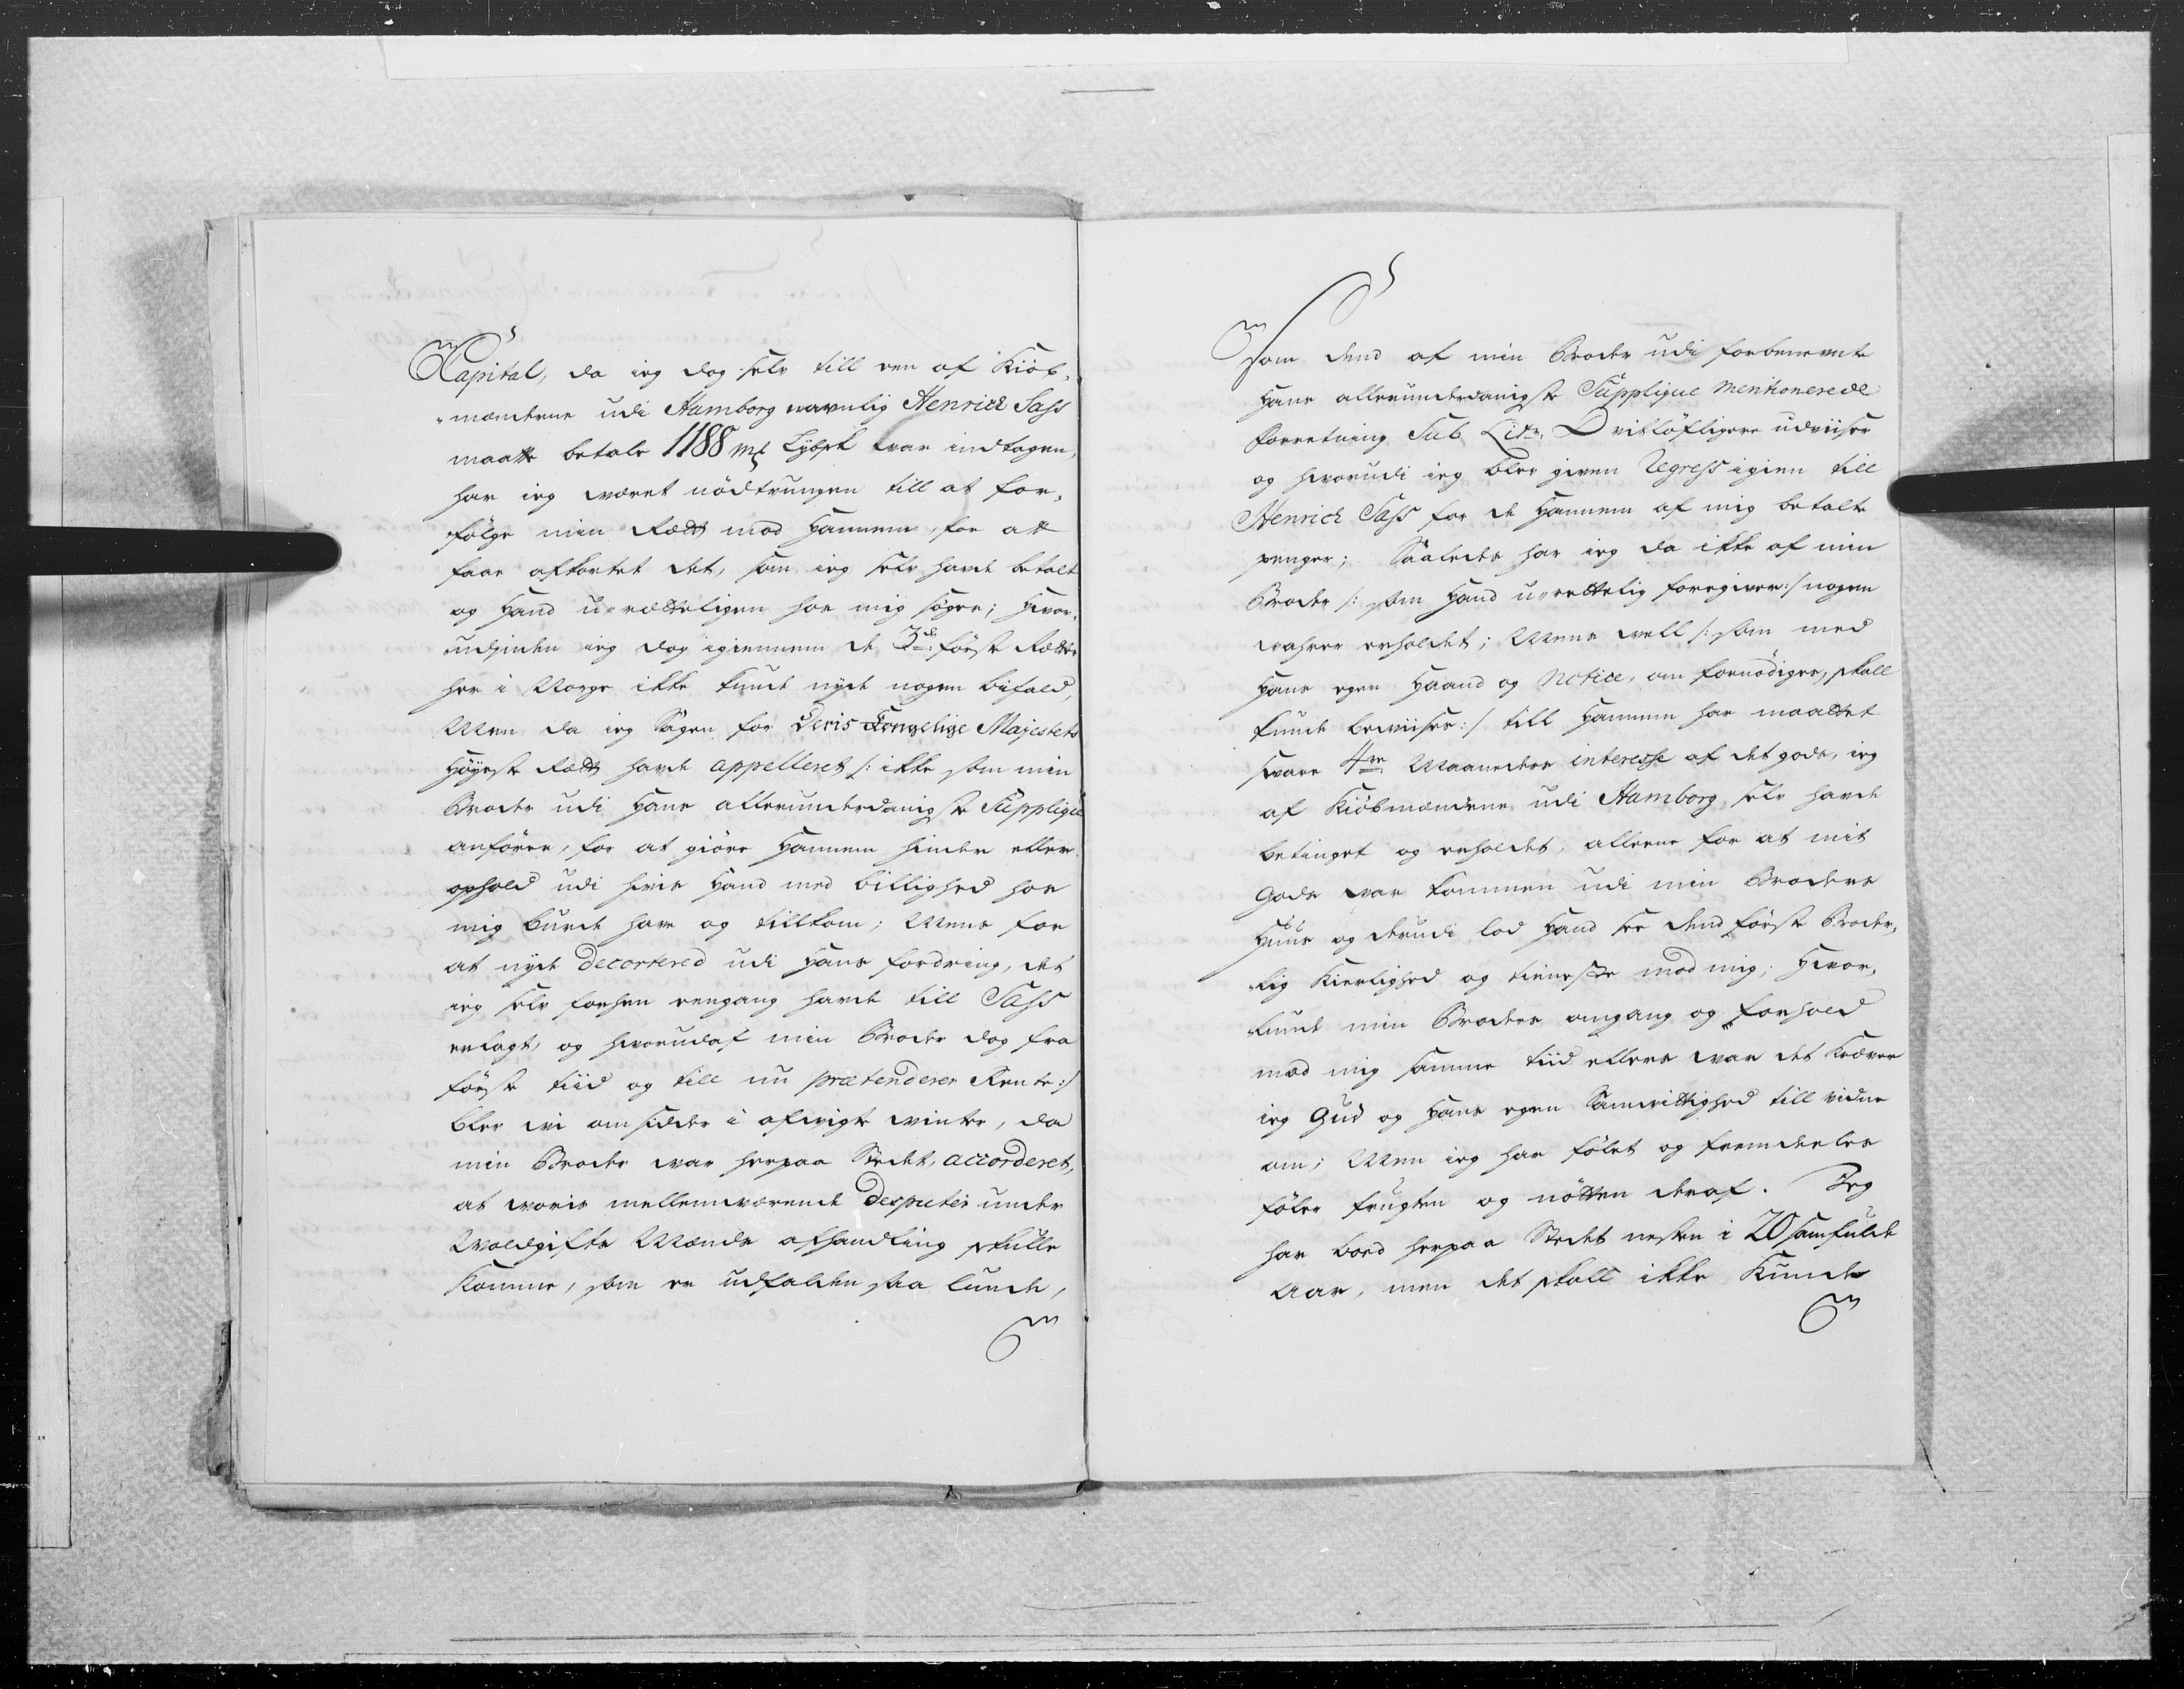 Capital, da ieg dog selv till een af Kiöb-
-mændene udi Hamborg navnlig Henrich Sass
maatte betale 1188 mk Lybsk var indtagen,
har ieg været nödtrungen till at for-
fölge min Rætt mod Hannem, for att
faae afkortet det, som ieg selv hafde betalt
og Hand u-rætteligen hos mig söger; Hvor-
-udinden ieg dog igiennem de 3de förste Rætter
her i Norge ikke kunde nyde nogen bifald,
Men da ieg Sagen for Deris Kongelige Majestets
Höyeste Rætt hafde appelleret /: ikke som min
Broder udi Hans allerunderdanigste Supplique
anförer, for at giöre Hannem hinder eller
ophold udi hvis Hand med billighed hos
mig burde have og tillkom; Mens for
at nyde decorteret udi Hans fordring, det
ieg selv forhen eengang hafde till Sass
erlagt, og hvorudaf min Broder dog fra
förste tiid og till nu prætenderer Rente :/
blev vi omsidder i afvigte vinter, da
min Broder var herpaa Stedet, accorderet,
at voris mellemværende Disputer under
Woldgifte Mænds afhandling skulle
Komme, som er udfalden saa lunde,
som dend af min Broder udi forbenevnte
Hans allerunderdanigste Supplique mentionerede
Forretning Sub Litr. D vitlöftigere udviiser
og hvorudi ieg blev given Regress igien till
Henrich Sass for de Hannem af mig betalte
penger; Saaledes har ieg da ikke af min
Broder /: som Hand u-rettelig foregiver :/ nogen
vahrer erholdet; Mens vell /: som med
Hans egen Haand og Notice, om fornödiges, skall
kunde beviises :/ till Hannem har maattet
svare 4re Maaneders interesse af det gode, ieg
af Kiöbmændene udi Hamborg selv hafde
betinget og erholdet, alleene for at mit
Gods var kommen udi min Broders
Huus og derudi lod Hand see dend förste Broder-
-lig Kierlighed og tieneste mod mig; Hvor-
-lunde min Broders omgang og forhold
mod mig samme tiid ellers var det Kræver
ieg Gud og Hans egen Samvittighed till vidne
om; Men ieg har fölet og fremdeeles
föler frugten og nötten deraf. Jeg
har boed herpaa Stedet nesten i 20 samfulde
Aar, men det skall ikke Kunde